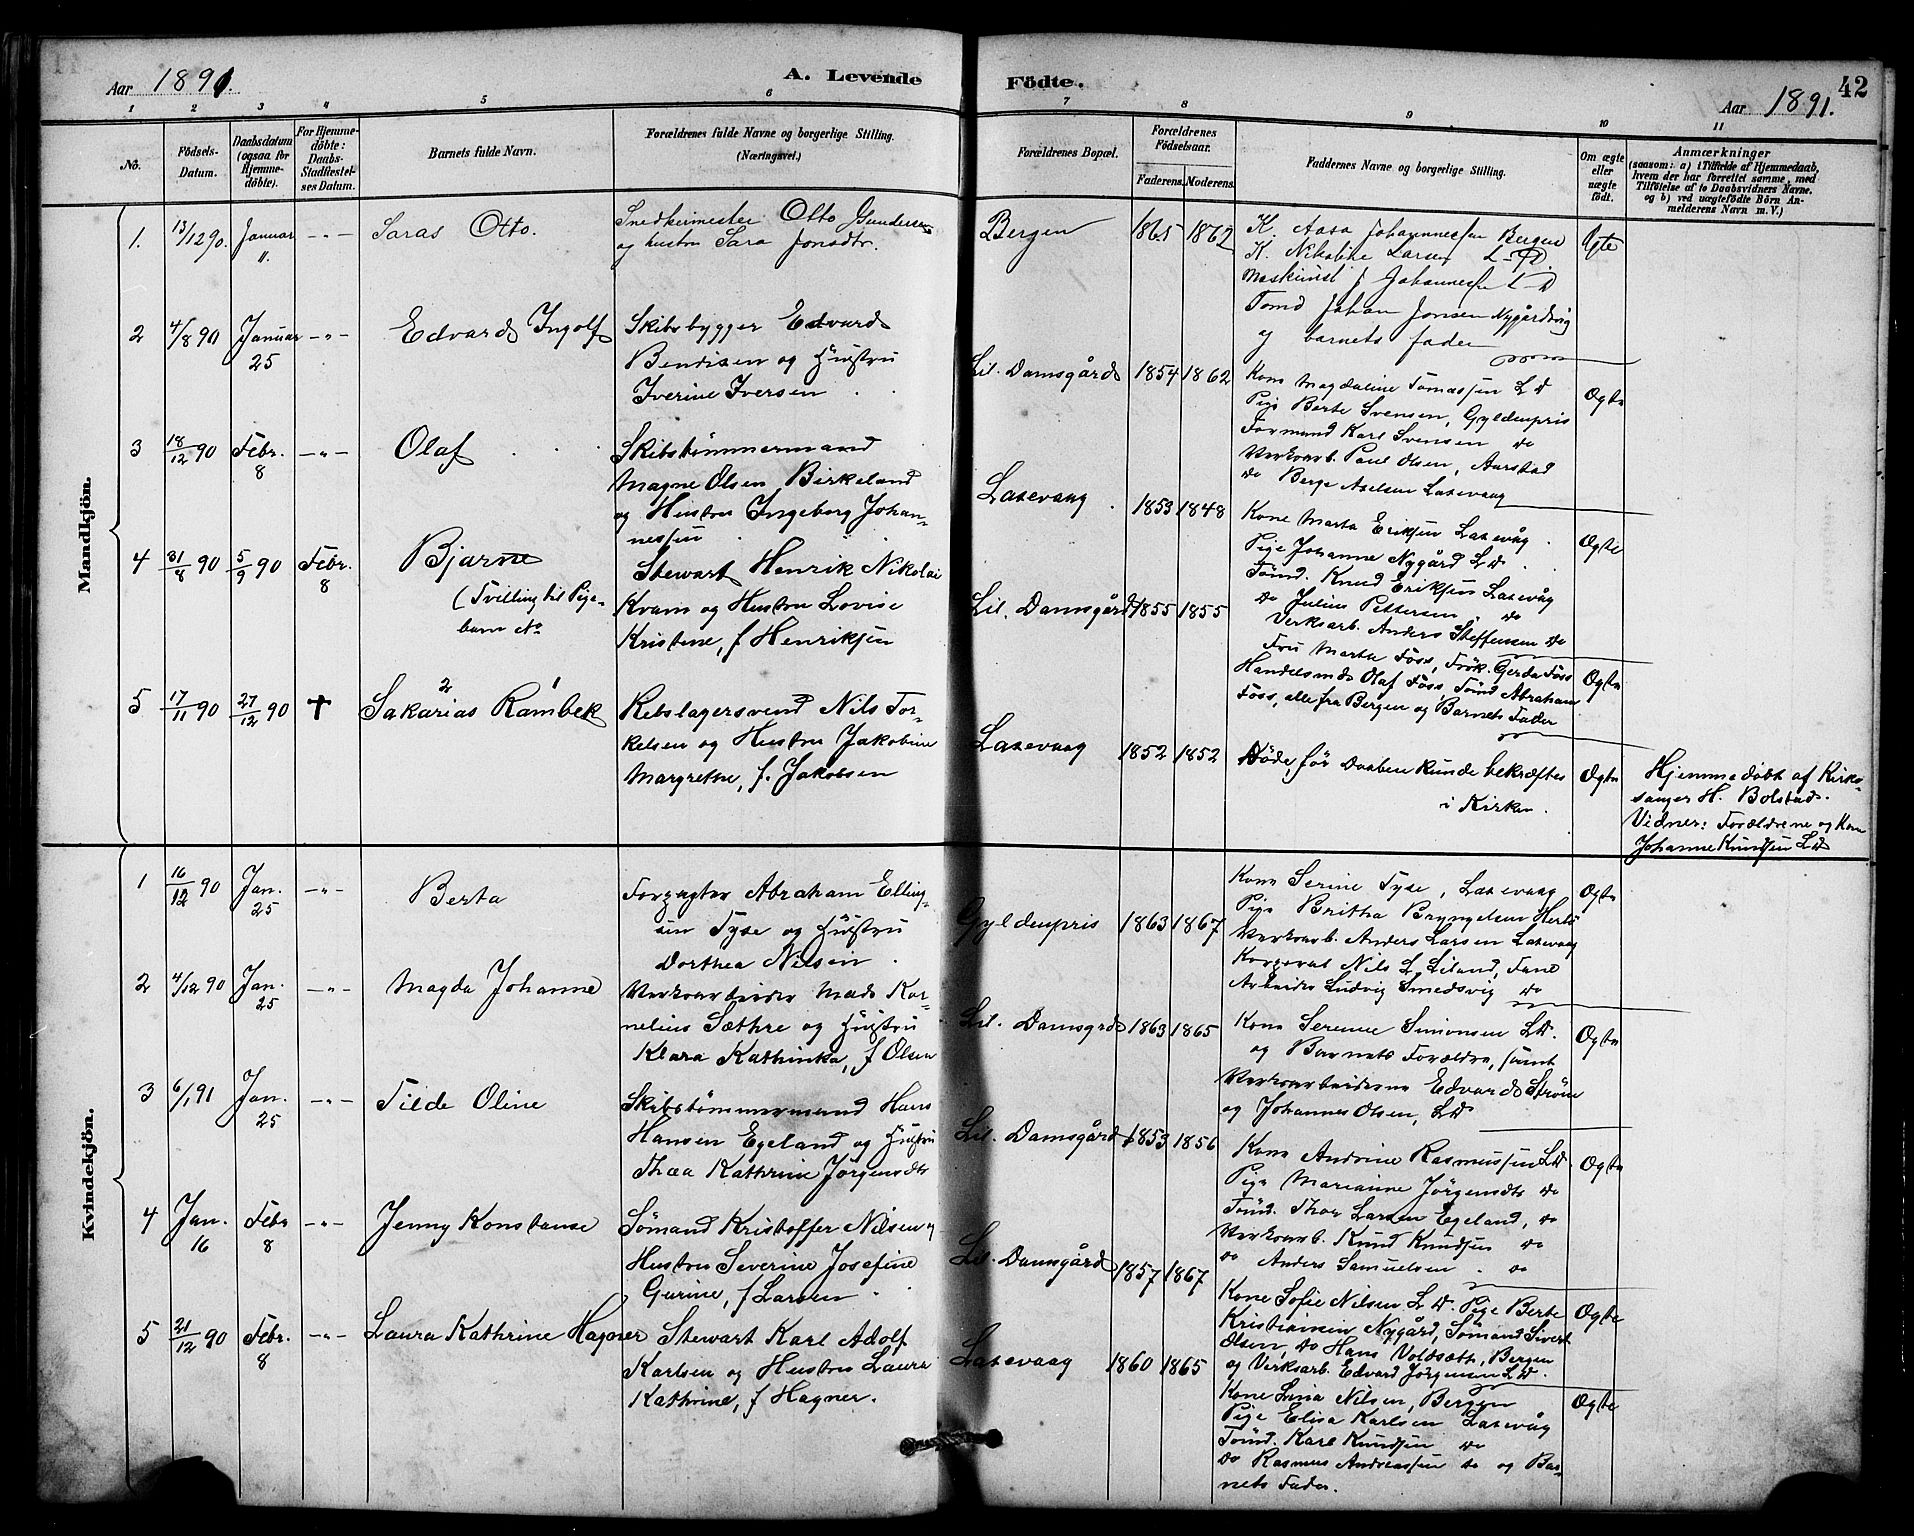 Aar 1891.
A. Levende Födte.
42
Aar 1891.
1 2 3 4 5 6 7 8 9 10 11
No. Födsels-Datum. Daabsdatum (ogsaa for Hjemme-döbte). For Hjemme-döbte: Daabs-Stadfæstel-ses Datum. Barnets fulde Navn. Forældrenes fulde Navne og borgerlige Stilling. (Næringsvei.) Forældrenes Bopæl. Forældrenes Födselsaar. Faderens. Moderens. Faddernes Navne og borgerlige Stilling. Om ægte eller uægte födt. Anmærkninger (saasom: a) i Tilfælde af Hjemmedaab, hvem der har forrettet samme, med Tilföielse af to Daabsvidners Navne, og b) ved uægtefödte Börn An-melderens Navn m. V.)
Mandkjön.
1. 13/12 90. Januar 11. -"- Saras Otto.
Snedkermester Otto Gundersen
og hustru Sara Jonsdtr.
Bergen 1865 1862
K. Aasa Johannessen Bergen
K. Nikoline Larsen L-D.
Maskinist J Johannessen L-D
Tømd Johan Jonsen Nygårdsvig
og barnets fader
Ægte
2 4/8 90 Januar 25 -"- Edvard Ingolf
Skibsbygger Edvard
Bendixen og Hustru
Iverine Iversen
Lil. Damsgård 1854 1862
Kone Magdaline Tomassen L D
Pige Berte Svensen, Gyldenpris
Formand Karl Svensen do
Verksarb. Paul Olsen, Aarstad
do Berge Axelsen Laxevaag
Ægte
3 18/12 90 Febr. 8 -"- Olaf
Skibstømmermand
Magne Olsen Birkeland
og Hustru Ingeborg Johan-
nessen
Laxevaag 1853 1848
Kone Marta Eriksen Laxevåg
Pige Johanne Nygård L D
Tømd. Knud Eriksen Laxevåg
do Julius Pettersen, do
Verksarb. Anders Steffensen do
Ægte
4 31/8 90 5/9 90 Febr. 8 Bjarne
(Tvilling til Pige-
barn No
Stewart Henrik Nikolai
Kvam og Hustru Lovise
Kristene, f Henriksen
Lil. Damsgård 1855 1855
Fru Marta Foss, Frøk. Gerda Foss
Handelsmd Olaf Foss, Tømd Abraham
Foss, alle fra Bergen og Barnets Fader
Ægte
5 17/11 90 27/12 90 † Sakarias Rambek
2 1
Rebslagersvend Nils Tor-
kelsen og Hustru Jakobine
Margrethe, f. Jakobsen
Laxevaag 1852 1852
Døde, før Daaben kunde bekræftes
i Kirken.
Ægte
Hjemmedøbt af Kirke-
sanger H. Bolstad.
Vidner: Forældrene og Kone
Johanne Knudsen L D
Kvindekjön.
1 16/12 90 Jan. 25 -"- Berta
Forpagter Abraham Elling-
sen Tyse og Hustru
Dorthea Nilsen
Gyldenpris 1863 1867
Kone Serine Tyse, Laxevaag
Pige Britha Bryngelsen
Verksarb. Anders Larsen Laxevaag
Korporal Nils L Liland, Fane
Arbeider Ludvig Smedsvig do
Ægte
2 4/12 90 Jan. 25 -"- Magda Johanne
Verksarbeider Mads Kor-
nelius Sæthre og Hustru
Klara Kathinka, f Olsen
Lil. Damsgrd 1863 1865
Kone Serenne Simonsen L D
og Barnets Forældre, samt
Verksarbeiderne Edvard Strøm
og Johannes Olsen, L D
Ægte
3 6/1 91 Jan. 25 -"- Tilde Oline
Skibstømmermand Hans
Hansen Egeland og Hustru
Thea Kathrine Jørgensdtr
Lil. Damsgård 1853 1856
Kone Andrine Rasmussen L D
Pige Marianne Jørgensdtr do
Tømd. Thor Larsen Egeland, do
Verksarb. Knud Knudsen do
do Anders Samuelsen do
Ægte
4 Jan. 16 Febr 8 -"- Jenny Konstanse
Sømand Kristoffer Nilsen og
Hustru Severine Josefine
Gurine, f Larsen
Lil. Damsgård 1857 1867
Kone Sofie Nilsen L D. Pige Berte
Kristiansen Nygård, Sømand Sivert
Olsen, do Hans Voldsæth, Bergen
og Verksarb. Edvard Jørgensen L D.
Ægte
5 21/12 90 Febr. 8 -"- Laura Kathrine Hagner
Stewart Karl Adolf
Karlsen og Hustru Laura
Kathrine, f Hagner.
Laxevaag 1860 1865
Kone Lina Nilsen, Bergen
Pige Elisa Karlsen Laxevåg
Tømd. Karl Knudsen do
do Rasmus Andreassen do og Bar-
nets Fader.
Ægte